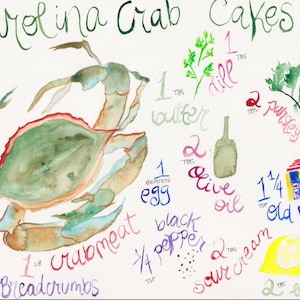 rolina Crab Cakes
1 TBS dill
1 TBS butter
2 TBS parsley
1 BEATEN egg
2 TBS Olive oil
1 1/4 TSP Old
1 LB crabmeat
1/4 TSP black pepper
2 TBS sour cream
Breadcrumbs
2